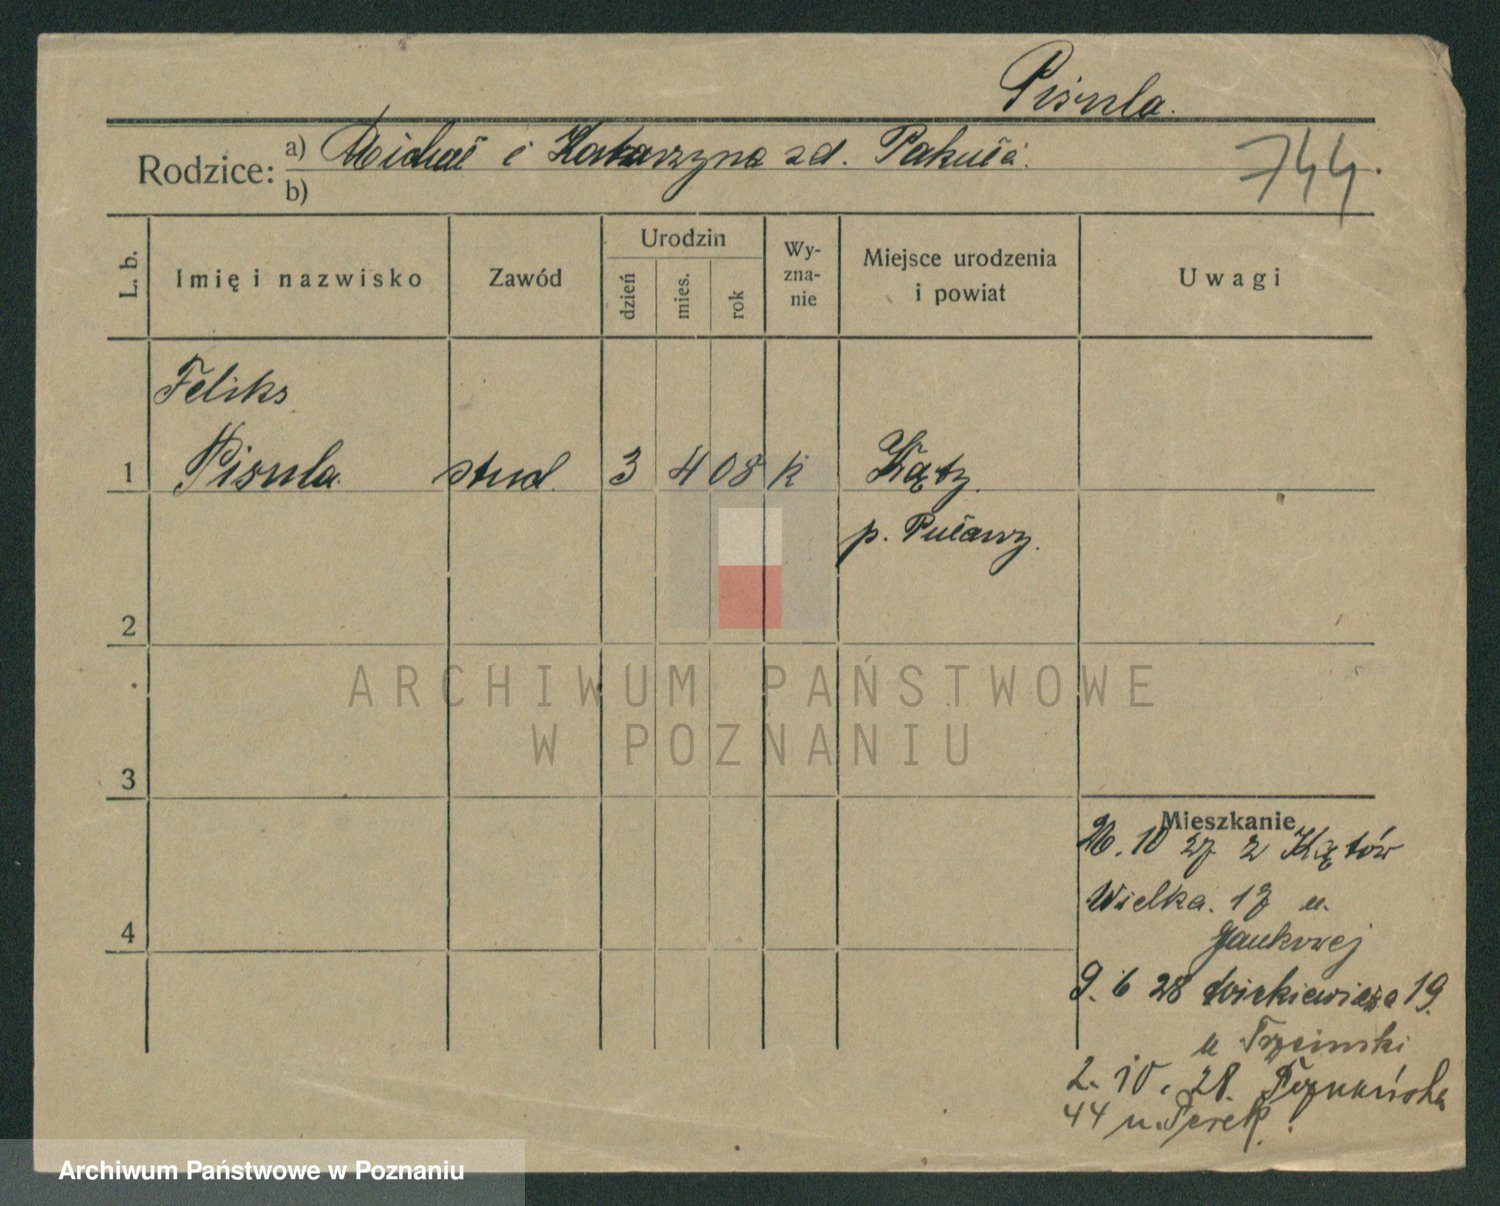 Pisula.
Rodzice: a) Michał i Katarzyna zd. Pakuła.
744.
b)
L. b.
Imię i nazwisko
Zawód
Urodzin
dzień
mies.
rok
Wy-
zna-
nie
Miejsce urodzenia
i powiat
Uwagi
Feliks
1 Pisula. stud. 3 4 08 k Kąty.
p. Puławy.
2
3
4
Mieszkanie
20. 10 27 z Kątów
Wielka. 17 u.
Jankowej
9. 6 28 Mickiewicza 19.
u Trzcinski
2. 10. 28. Poznańska
44 u. Perek.
ARCHIWUM PAŃSTWOWE
W POZNANIU
Archiwum Państwowe w Poznaniu